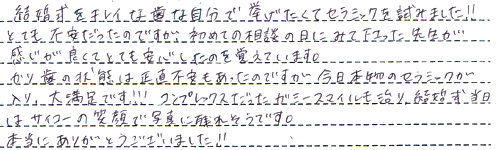 結婚式をキレイな歯な自分で挙げたくてセラミックを試みました!!
とても不安だったのですが、初めての相談の日にみて下さった先生が
感じが良くてとても安心したのを覚えています。
かり歯の状態は正直不安もあったのですが今日本物のセラミックが
入り、大満足です!!! コンプレックスだったガミースマイルも治り、結婚式当日
はサイコーの笑顔で写真に写れそうです。
本当にありがとうございました!!